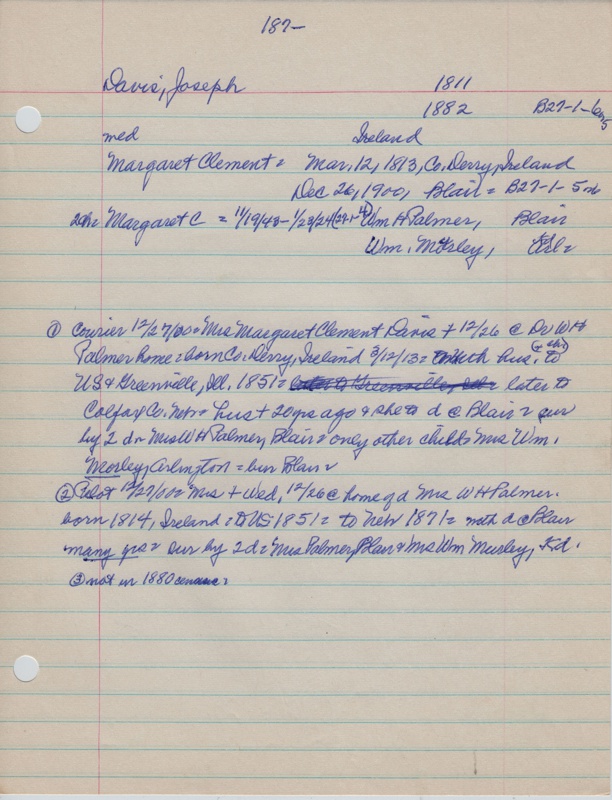 187-
Davis, Joseph 1811
1882 B27-1-6
med Ireland
Margaret Clement = Mar. 12, 1813, Co. Derry, Ireland
Dec 26, 1900, Blair = B27-1-5
2ch= Margaret C = 11/19/43-1/23/24 (27-1-4) Wm H Palmer, Blair
Wm. Mosley,
① Courier 12/27/00= Mrs Margaret Clement Davis + 12/26 @ Dv WH
Palmer home = born Co. Derry, Ireland 3/12/13= with hus. (+ chi) to
US & Greenville, Ill. 1851= later to
Colfax Co. Nebr= hus + 20 yrs ago & she to d @ Blair = sur
by 2 d = Mrs W H Palmer, Blair = only other child = Mrs Wm.
Morley, Arlington = bur Blair =
② Pilot 12/27/00= Mrs + Wed, 12/26 @ home of d Mrs W H Palmer.
born 1814, Ireland = to US 1851= to Nebr 1871= with d @ Blair
many yrs= sur by 2 d= Mrs Palmer, Blair & Mrs Wm Murley,
③ not in 1880 census=